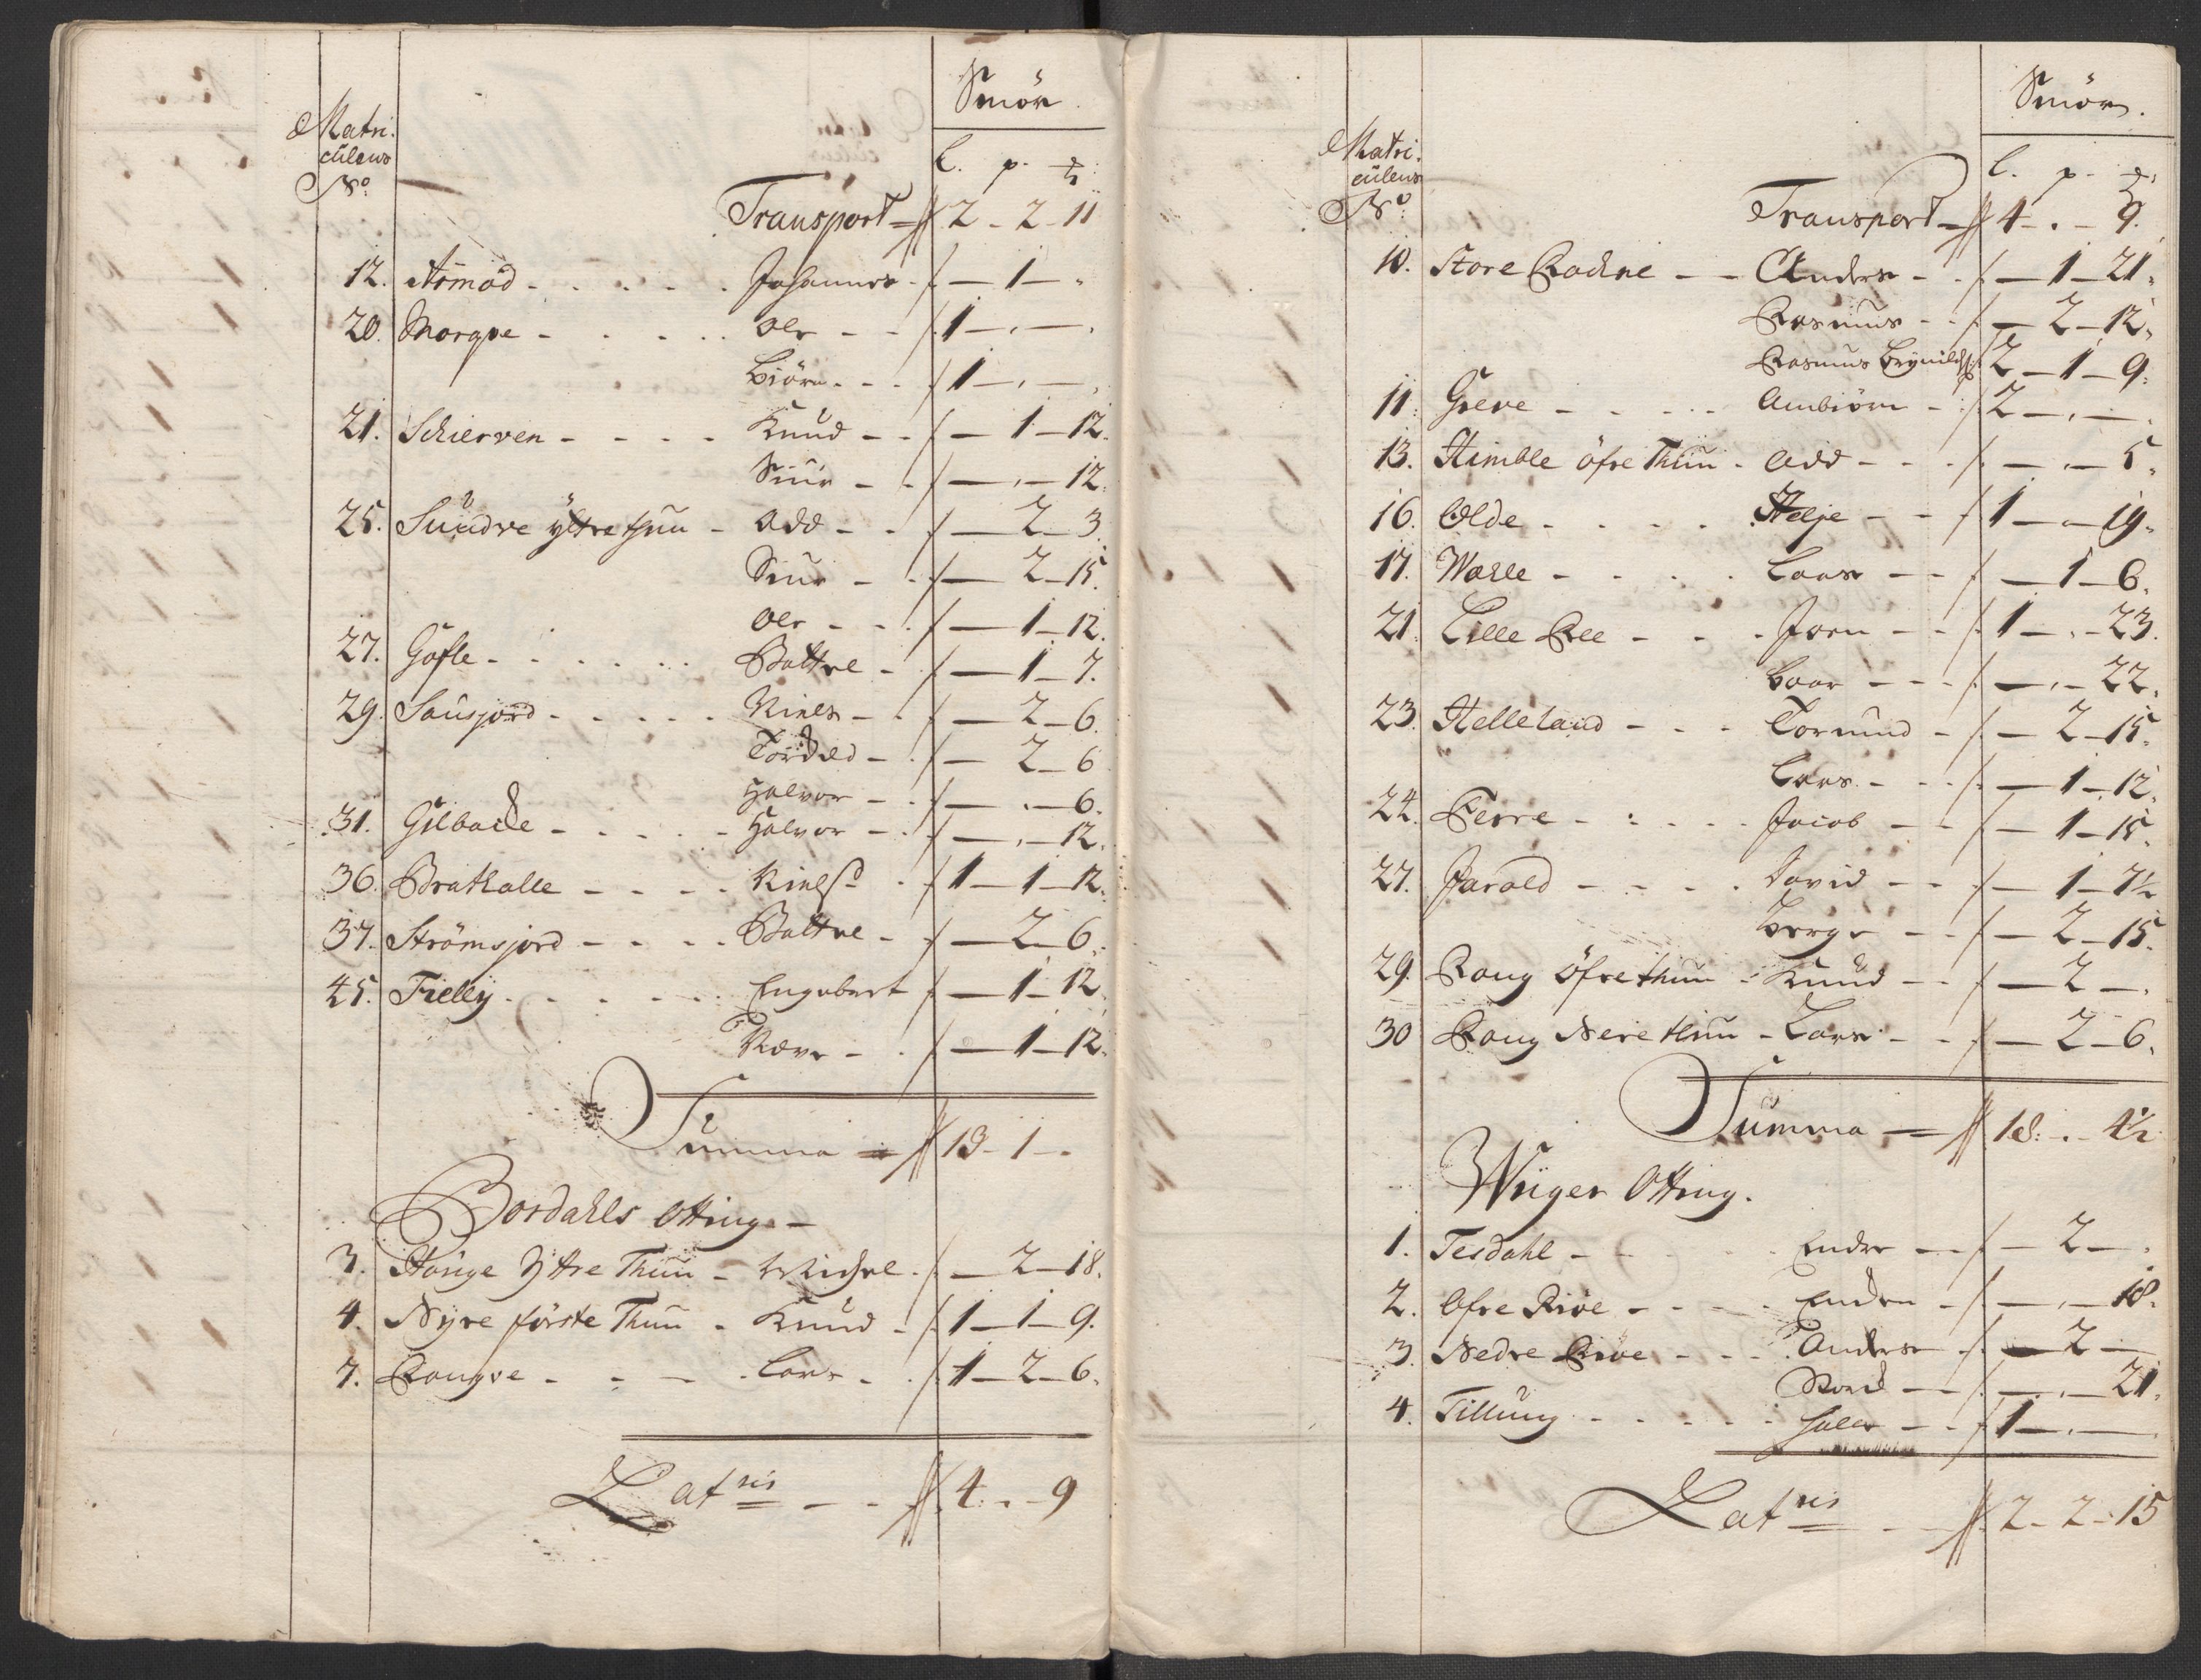 Smör.
Matri:
culens
No
L. p. ℔:
Transport = 2 - 2 - 11
12. Asmod - - - - - Johannes - 1 - "
20. Morque - - - - - Ole - - 1 - . - .
Biörn - - - 1 - . - .
21. Schierven - - - - Knud - - 1 - 12.
Siur - - - . - 12.
25. Sundve ÿttre thuun - Odd - - 2 - 3.
Siur - - 2 - 15.
Ole - - - 1 - 12.
27. Gofle - - - - - Baltne - - 1 - 7.
29. Sausjord - - - - - Niels - - 2 - 6.
Tordeld - - 2 - 6
Halvor - - . - 6.
31. Gilbacke - - - - - Halvor - - . - 12.
36. Bratkalle - - - - Niels - 1 - 1 - 12.
37. Strömsjord - - - - Baltne - - 2 - 6.
45. Fielly - - - - - - Engebert - 1 - 12.
- - 1 - 12.
Summa = 13 - 1 - .
Bordahls Otting -
3. Hauge Ÿttre Thuun - Michel - - 2 - 18.
4. Nyre förste Thuun - Knud - 1 - 1 - 9.
7. Rongve - - - - Lars - - 1 - 2 - 6.
Lat ris = - - 4 - . - 9
Smör.
Matri:
culens
No
L. p. ℔:
Transport = 4 - . - 9.
10. Store Rochne - - Anders - - 1 - 21.
Rasmus - - - 2 - 12.
Rasmus Brynilds: 2 - 1 - 9.
11. Greve - - - - - Ambiörn - 2 - . - .
13. Himble öfre Thuun - Odd - - - . - 5.
16. Olde - - - - Helje - - 1 - . - 19.
17. Wæhle - - - - Lars - - - 1 - 6.
21. Lille Ree - - - Joen - - 1 - . - 23.
Baar - - - . - 22.
23. Helleland - - - Tormund - - 2 - 15.
Lars - - - 1 - 12.
24. Ferre - - - - - Jacob - - 1 - 15.
27. Jarald - - - - David - - - 1 - 7½
Børge - - - 2 - 15.
29. Rong Öfre thuun - Knud - - - 2 - .
30 Rong Nere thuun - Lars - - - 2 - 6.
Summa = 18. - . - 4½
Winger Otting.
1. Tesdahl - - - - Endre - - - 2 - .
2. Ofre Riöe - - - - Endre - - . - 18.
3. Nedre Riöe - - - Anders - - 2 -
- - . - 21.
4. Tillung - - - - - - - 1 - . -
Lat ris = - - 2 - 2 - 15